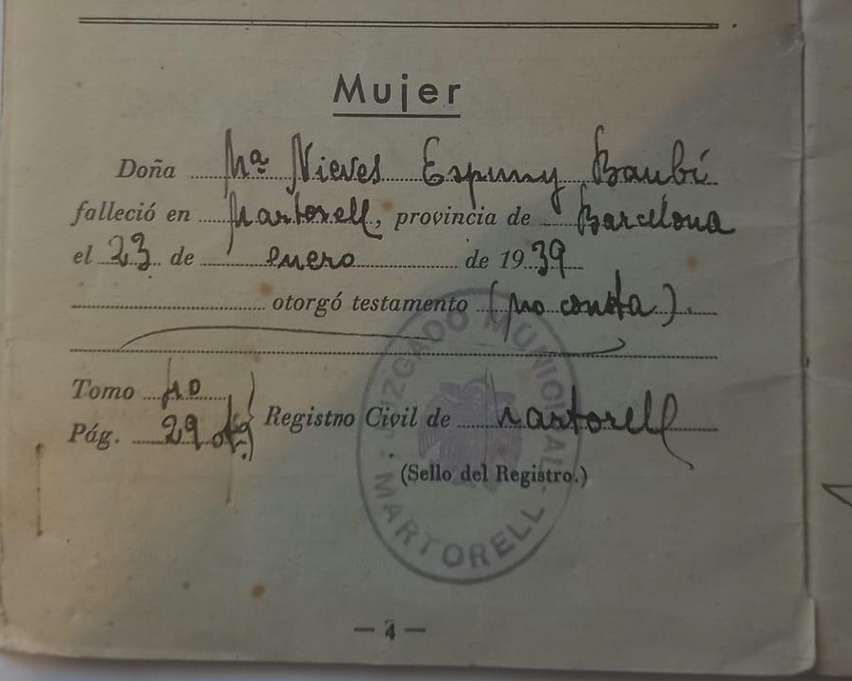 Mujer
Doña Mª Nieves Espuny Baubí
falleció en Martorell, provincia de Barcelona
el 23 de enero de 1939
otorgó testamento (no consta).
Tomo
Pág. 29 Registro Civil de Martorell
(Sello del Registro.)
JUZGADO MUNICIPAL
MARTORELL
— 4 —